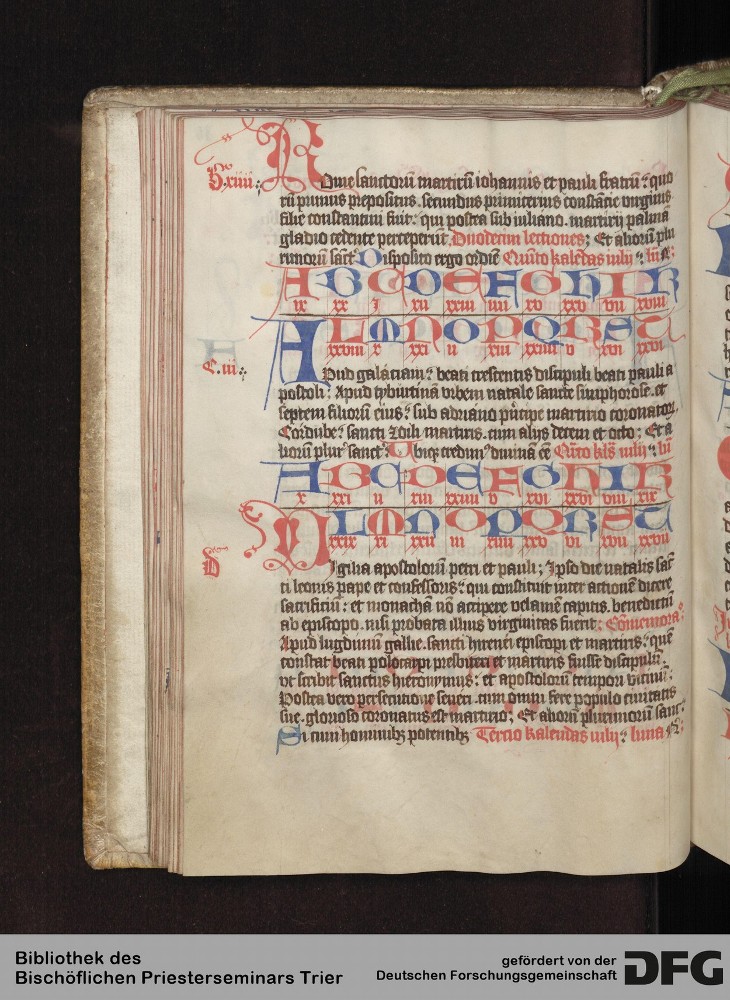 Rome sanctorũ martirũ iohannis et pauli fratrũ: quo
rũ primus prepositus. secundus primicerius constãcie virginis
filie constantini fuit: qui postea sub iuliano. martirij palmã
gladio cedente perceperũt. Duodecim lectiones: Et aliorũ plu
rimorũ sanct' Disposito ergo ordiñe Quĩto kalẽdas iulij: lũ
A B C D E F G H I K
ix xx j xij xxiij iiij xv xxvi vij xviij
A L M N O P Q R S T
xxviij x xxi ij xiij xxiiij v xvi xxvi
C. iij:
Apud galaciam: beati crescentis discipuli beati pauli a
postoli: Apud tyburtinã vrbem natale sancte simphorose. et
septem filiorũ eius: sub adriano prĩcipe martirio coronator.
Cordube: sancti zoili martiris. cum alijs decem et octo: Et a
liorũ plur' sanct': Ubiqꝫ credim' diuinã ẽe Qũto kl's iulij: lũ
A B C D E F G H I K
x xxi ij xiij xxiiij v xvi xxvi viij xix
L M N O P Q R S T
xxix xi xxij iij xiiij xxv vi xvij xxvij
D
Vigilia apostolorũ petri et pauli: Ipso die natalis sãc
ti leonis pape et confessoris: qui constituit inter actionẽ dicere
sacrificiũ: et monachã nõ accipere velamẽ capitis. benedictũ
ab episcopo. nisi probata illius virginitas fuerit: Cõmemora°
Apud lugdunũ gallie. sancti hirenei episcopi et martiris: quẽ
constat beati policarpi presbiteri et martiris fuisse discipulũ.
vt scribit sanctus hieronymus: et apostolorũ tempori vicinũ:
Postea vero persecutione seueri. cum omni fere populo ciuitatis
sue. glorioso coronatus est martirio: Et aliorũ plurimorũ sanc'
Si cum hominibꝫ potentibꝫ Tercio kalendas iulij: luna
Bibliothek des
Bischöflichen Priesterseminars Trier
gefördert von der
Deutschen Forschungsgemeinschaft
DFG